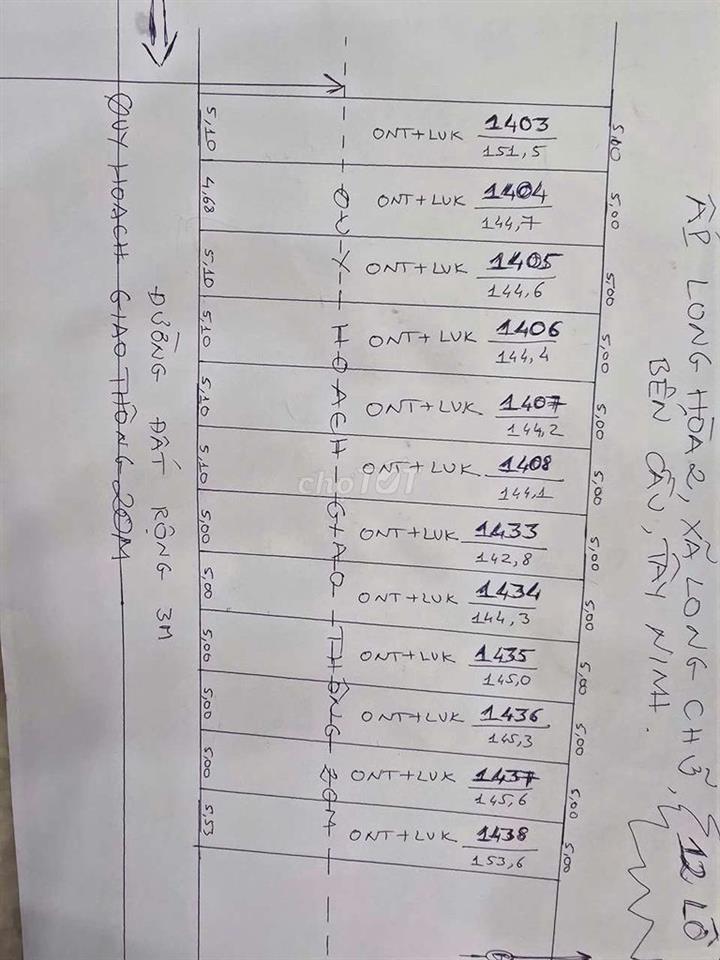 ẤP LONG HÒA 2, XÃ LONG CHỮ,
BẾN CẦU, TÂY NINH.
12 LÔ
5,10 ONT+LUK 1403 151,5 5,00
4,68 ONT+LUK 1404 144,7 5,00
5,10 ONT+LUK 1405 144,6 5,00
5,10 ONT+LUK 1406 144,4 5,00
5,10 ONT+LUK 1407 144,2 5,00
5,10 ONT+LUK 1408 144,1 5,00
5,00 ONT+LUK 1433 142,8 5,00
5,00 ONT+LUK 1434 144,3 5,00
5,00 ONT+LUK 1435 145,0 5,00
5,00 ONT+LUK 1436 145,3 5,00
5,00 ONT+LUK 1437 145,6 5,00
5,53 ONT+LUK 1438 153,6 5,00
QUY HOẠCH GIAO THÔNG 20M
ĐƯỜNG ĐẤT RỘNG 3M
QUY HOẠCH GIAO THÔNG 20M
choTỐT